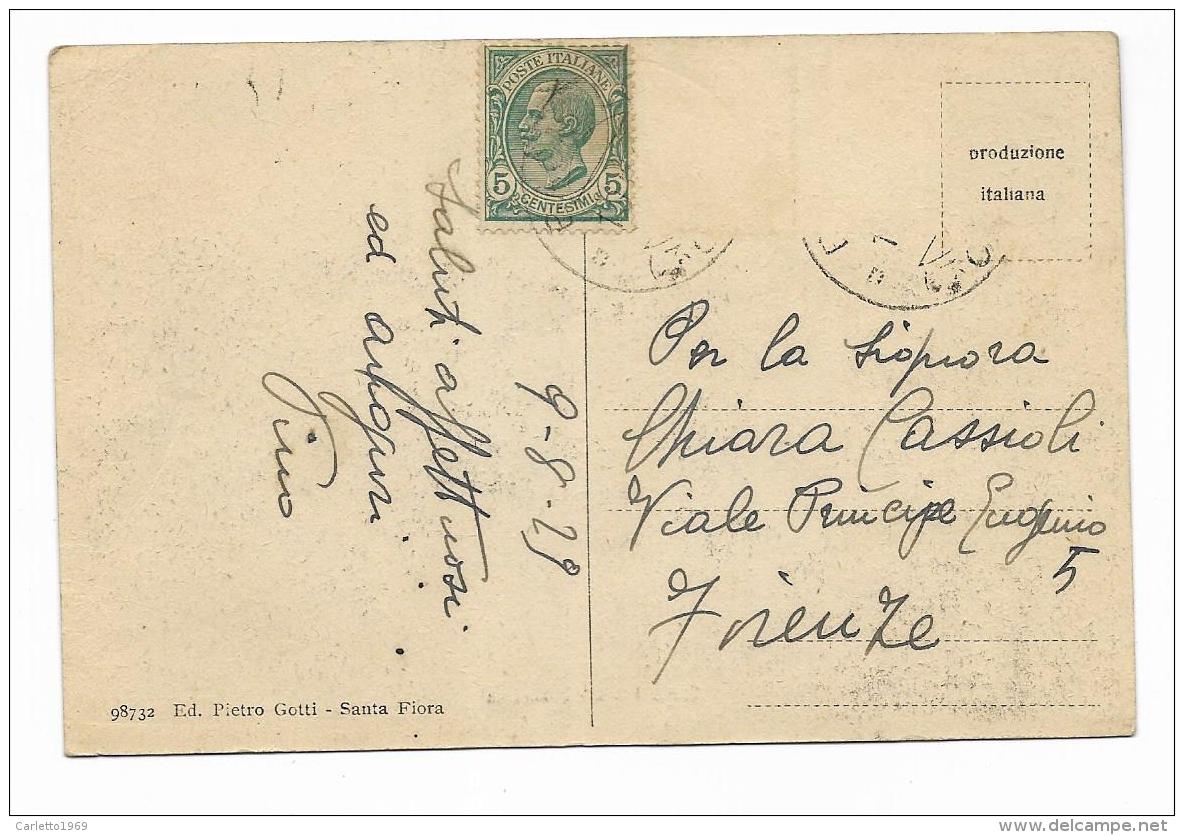 POSTE ITALIANE
5 5
CENTESIMI
produzione
italiana
Saluti affettuosi
ed auguri
Gino
9-8-29
Per la Signora
Chiara Cassioli
Viale Principe Eugenio
5
Firenze
98732 Ed. Pietro Gotti - Santa Fiora
Carletto1969
delcampe.net